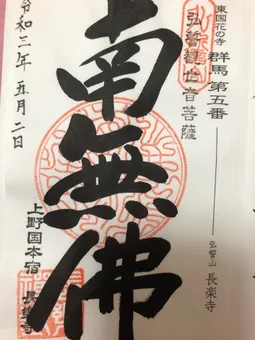 東国花の寺
群馬 第五番
弘誓山 長楽寺
弘誓観世音菩薩
南無佛
令和三年五月二日
上野国本宿 長楽寺